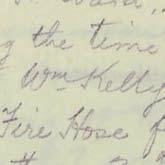 g the time
Wm Kelly
Fire Hose f